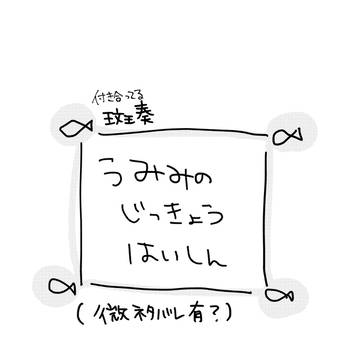 付き合ってる
斑奏
うみみの
じっきょう
はいしん
(微ネタバレ有?)